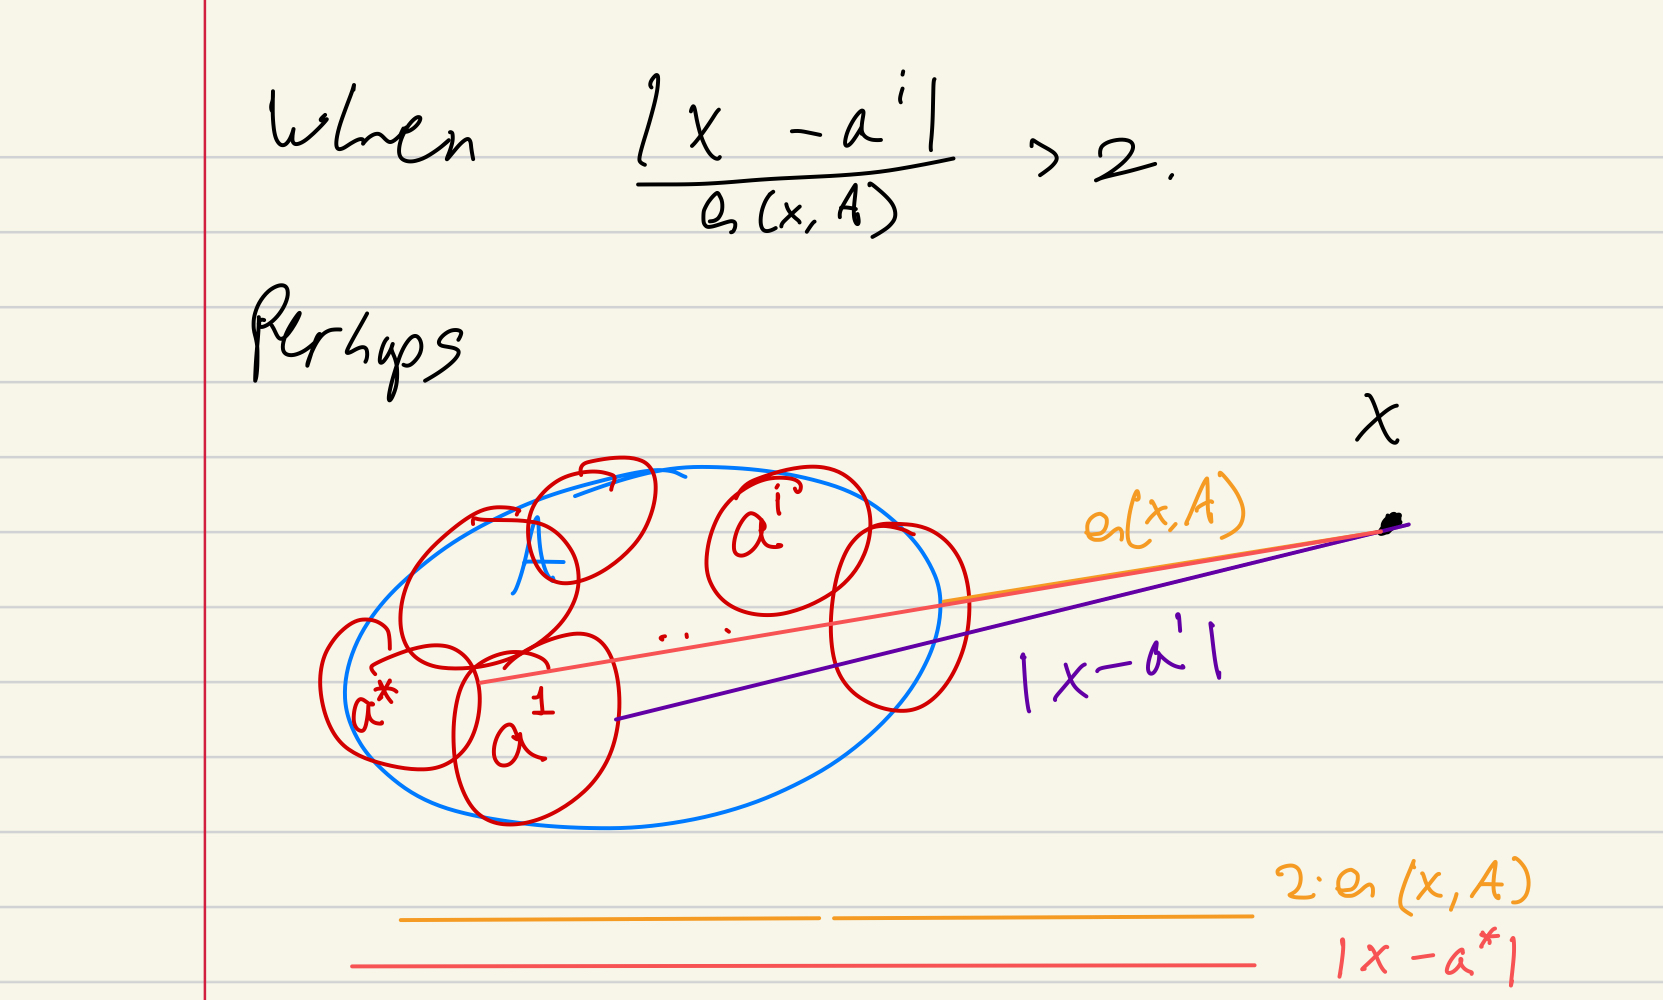 When |x - a^i| / e(x, A) > 2.
Perhaps
X
e(x, A)
A
a^i
...
|x - a^i|
a*
a^1
2·e(x, A)
|x - a*|